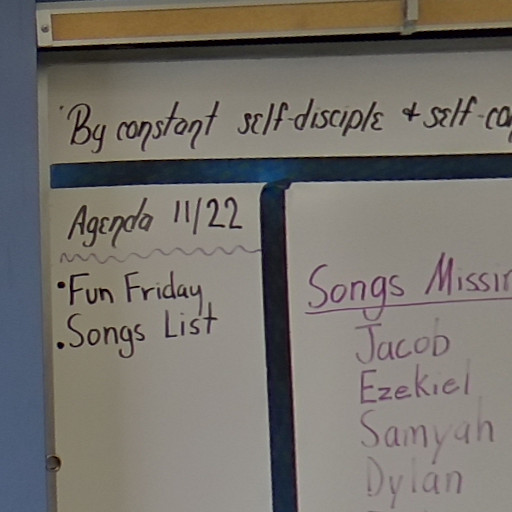 By constant self-disciple + self-co
Agenda 11/22
• Fun Friday
• Songs List
Songs Missin
Jacob
Ezekiel
Samyah
Dylan